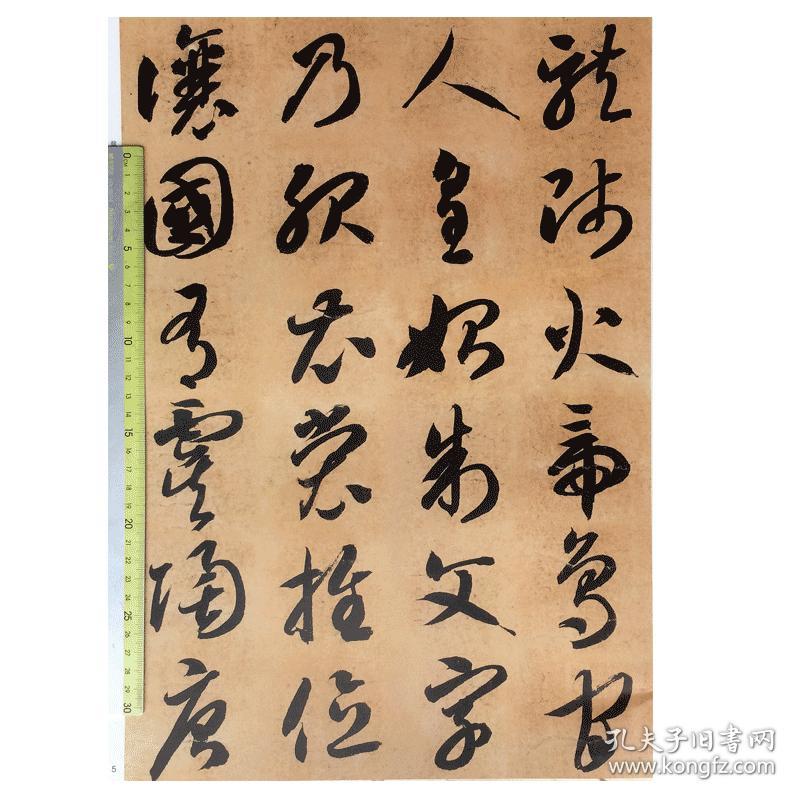 龍師火帝鳥官
人皇始制文字
乃服衣裳推位
讓國有虞陶唐
0CM 1 2 3 4 5 6 7 8 9 10 11 12 13 14 15 16 17 18 19 20 21 22 23 24 25 26 27 28 29 30
5
孔夫子旧书网
www.kongfz.com